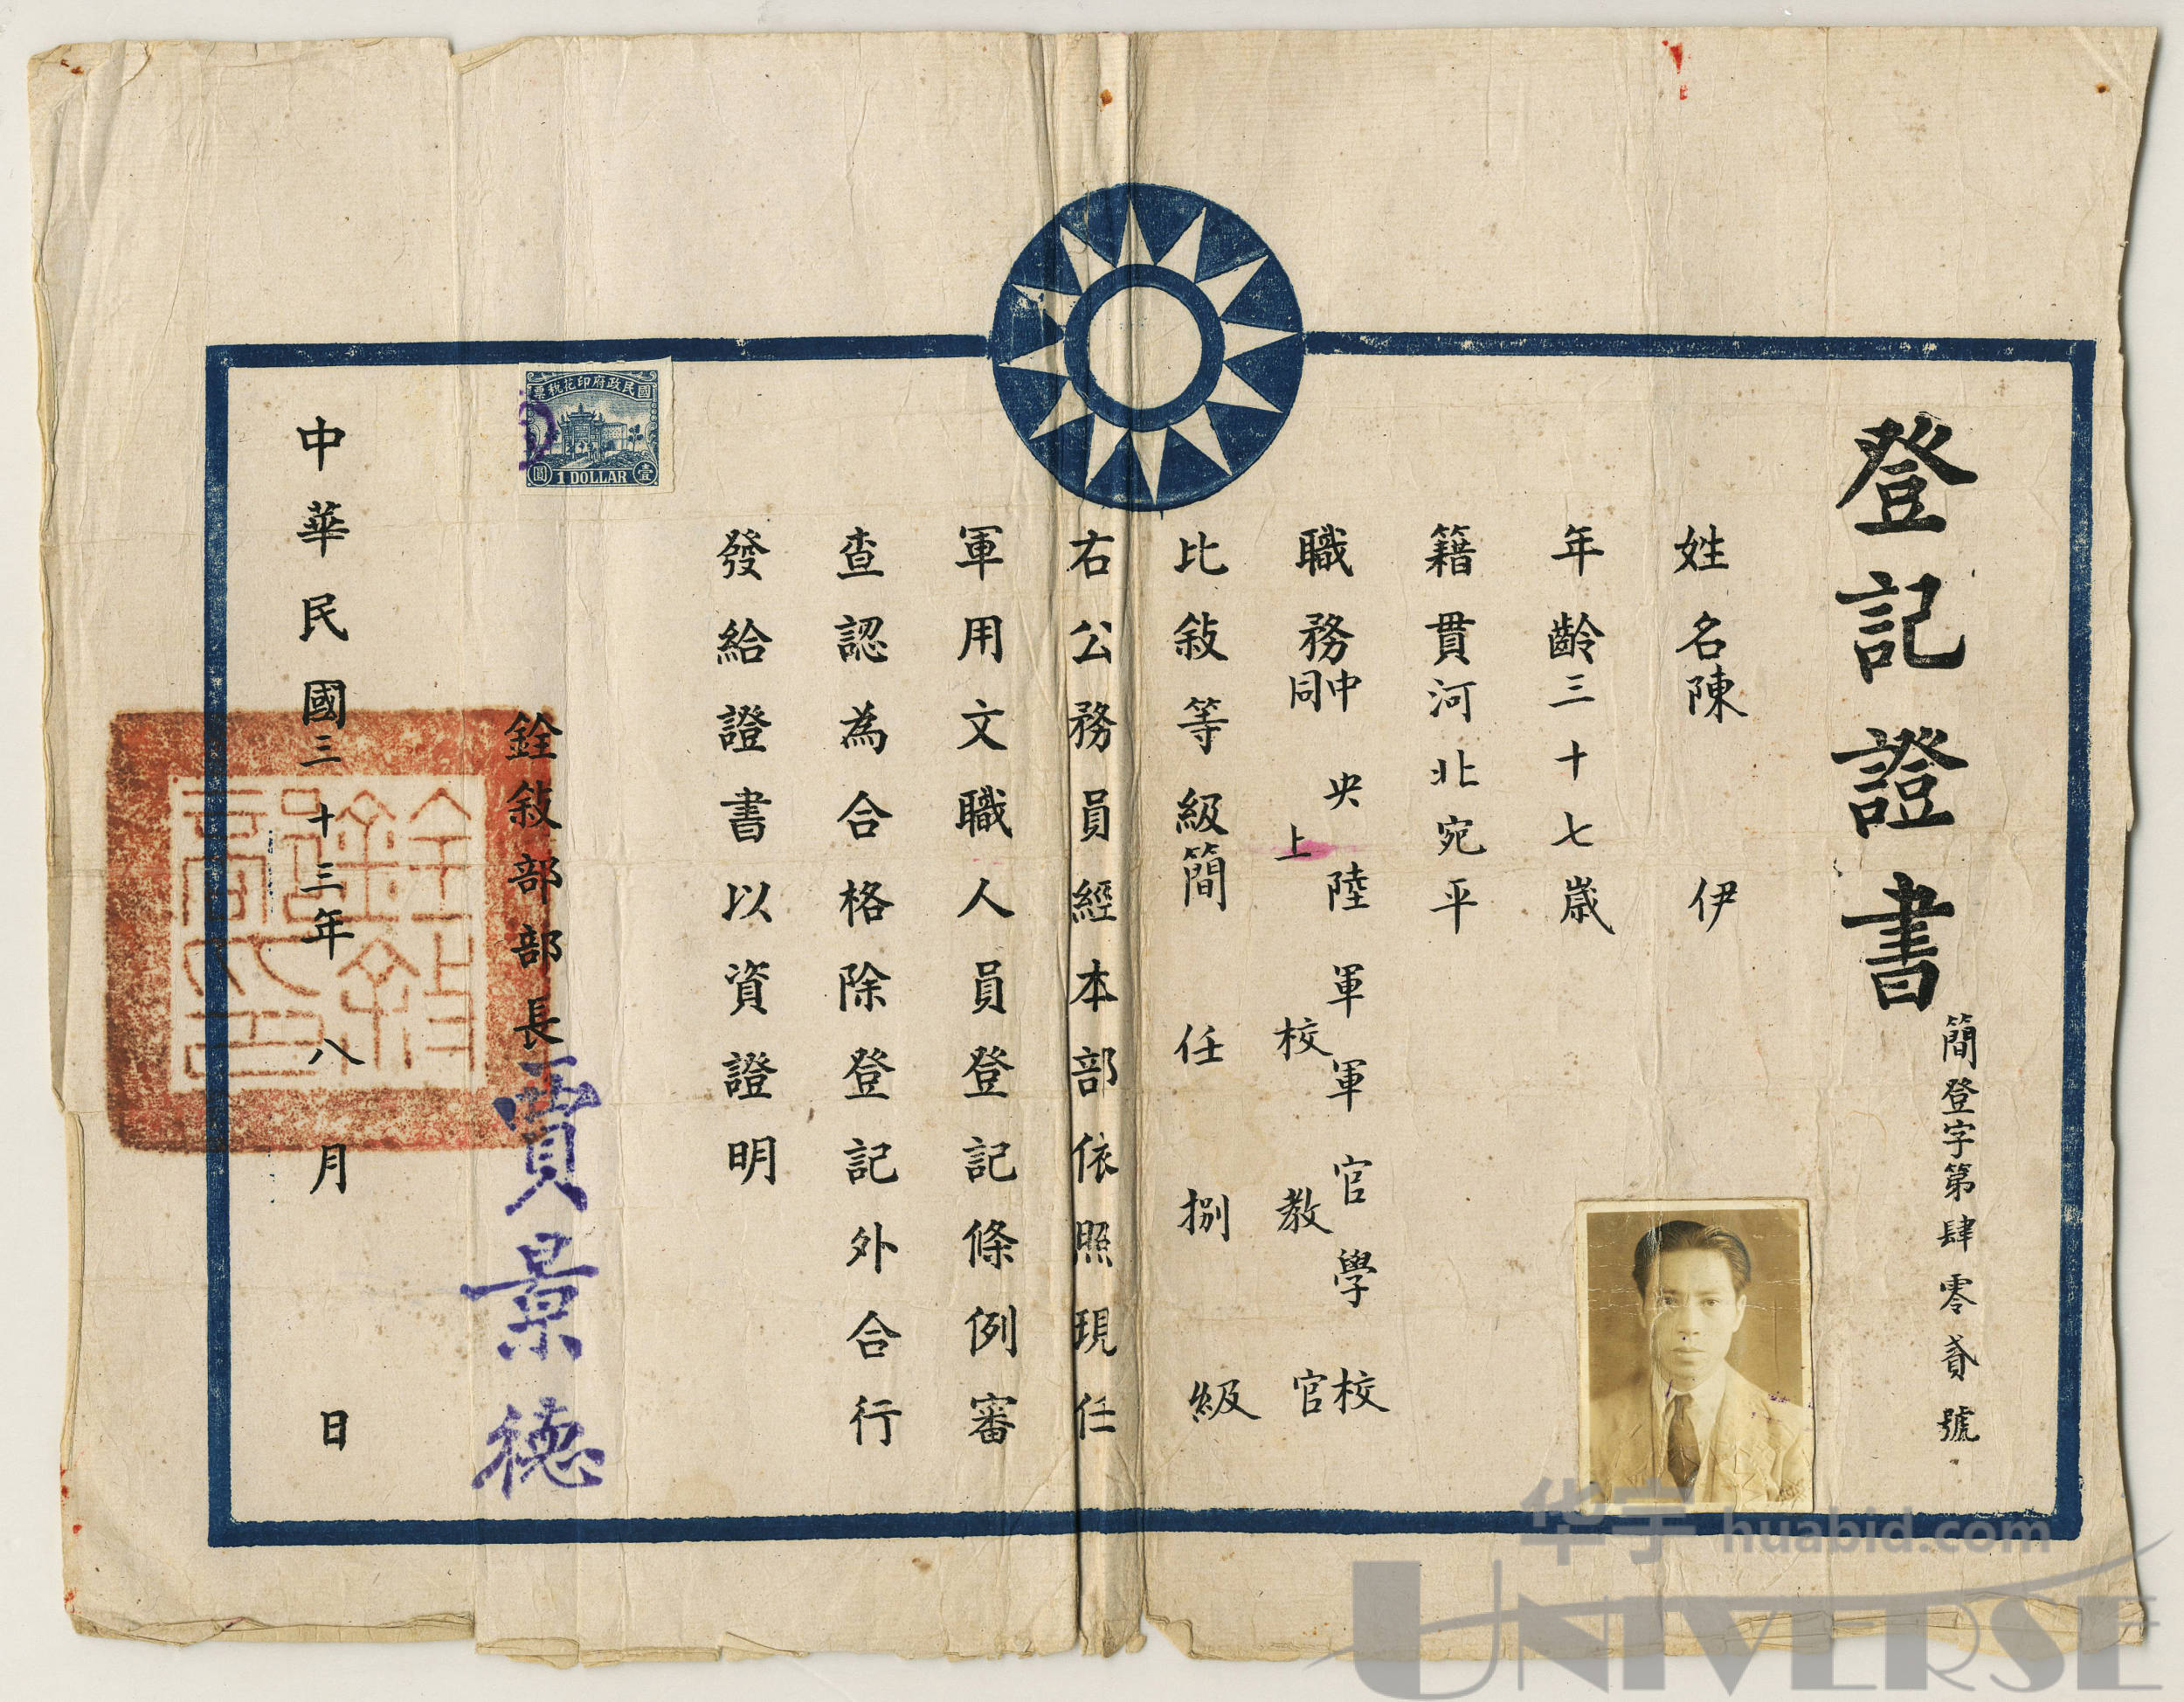 登記證書
簡登字第肆零貳號
姓名陳伊
年齡三十七歲
籍貫河北宛平
職務中央陸軍軍官學校
同上校教官
比敍等級簡任捌級
右公務員經本部依照現任
軍用文職人員登記條例審
查認為合格除登記外合行
發給證書以資證明
國民政府印花稅票
圓 1 DOLLAR 壹
銓敍部部長賈景德
中華民國三十三年八月日
华宇 huabid.com
UNIVERSE